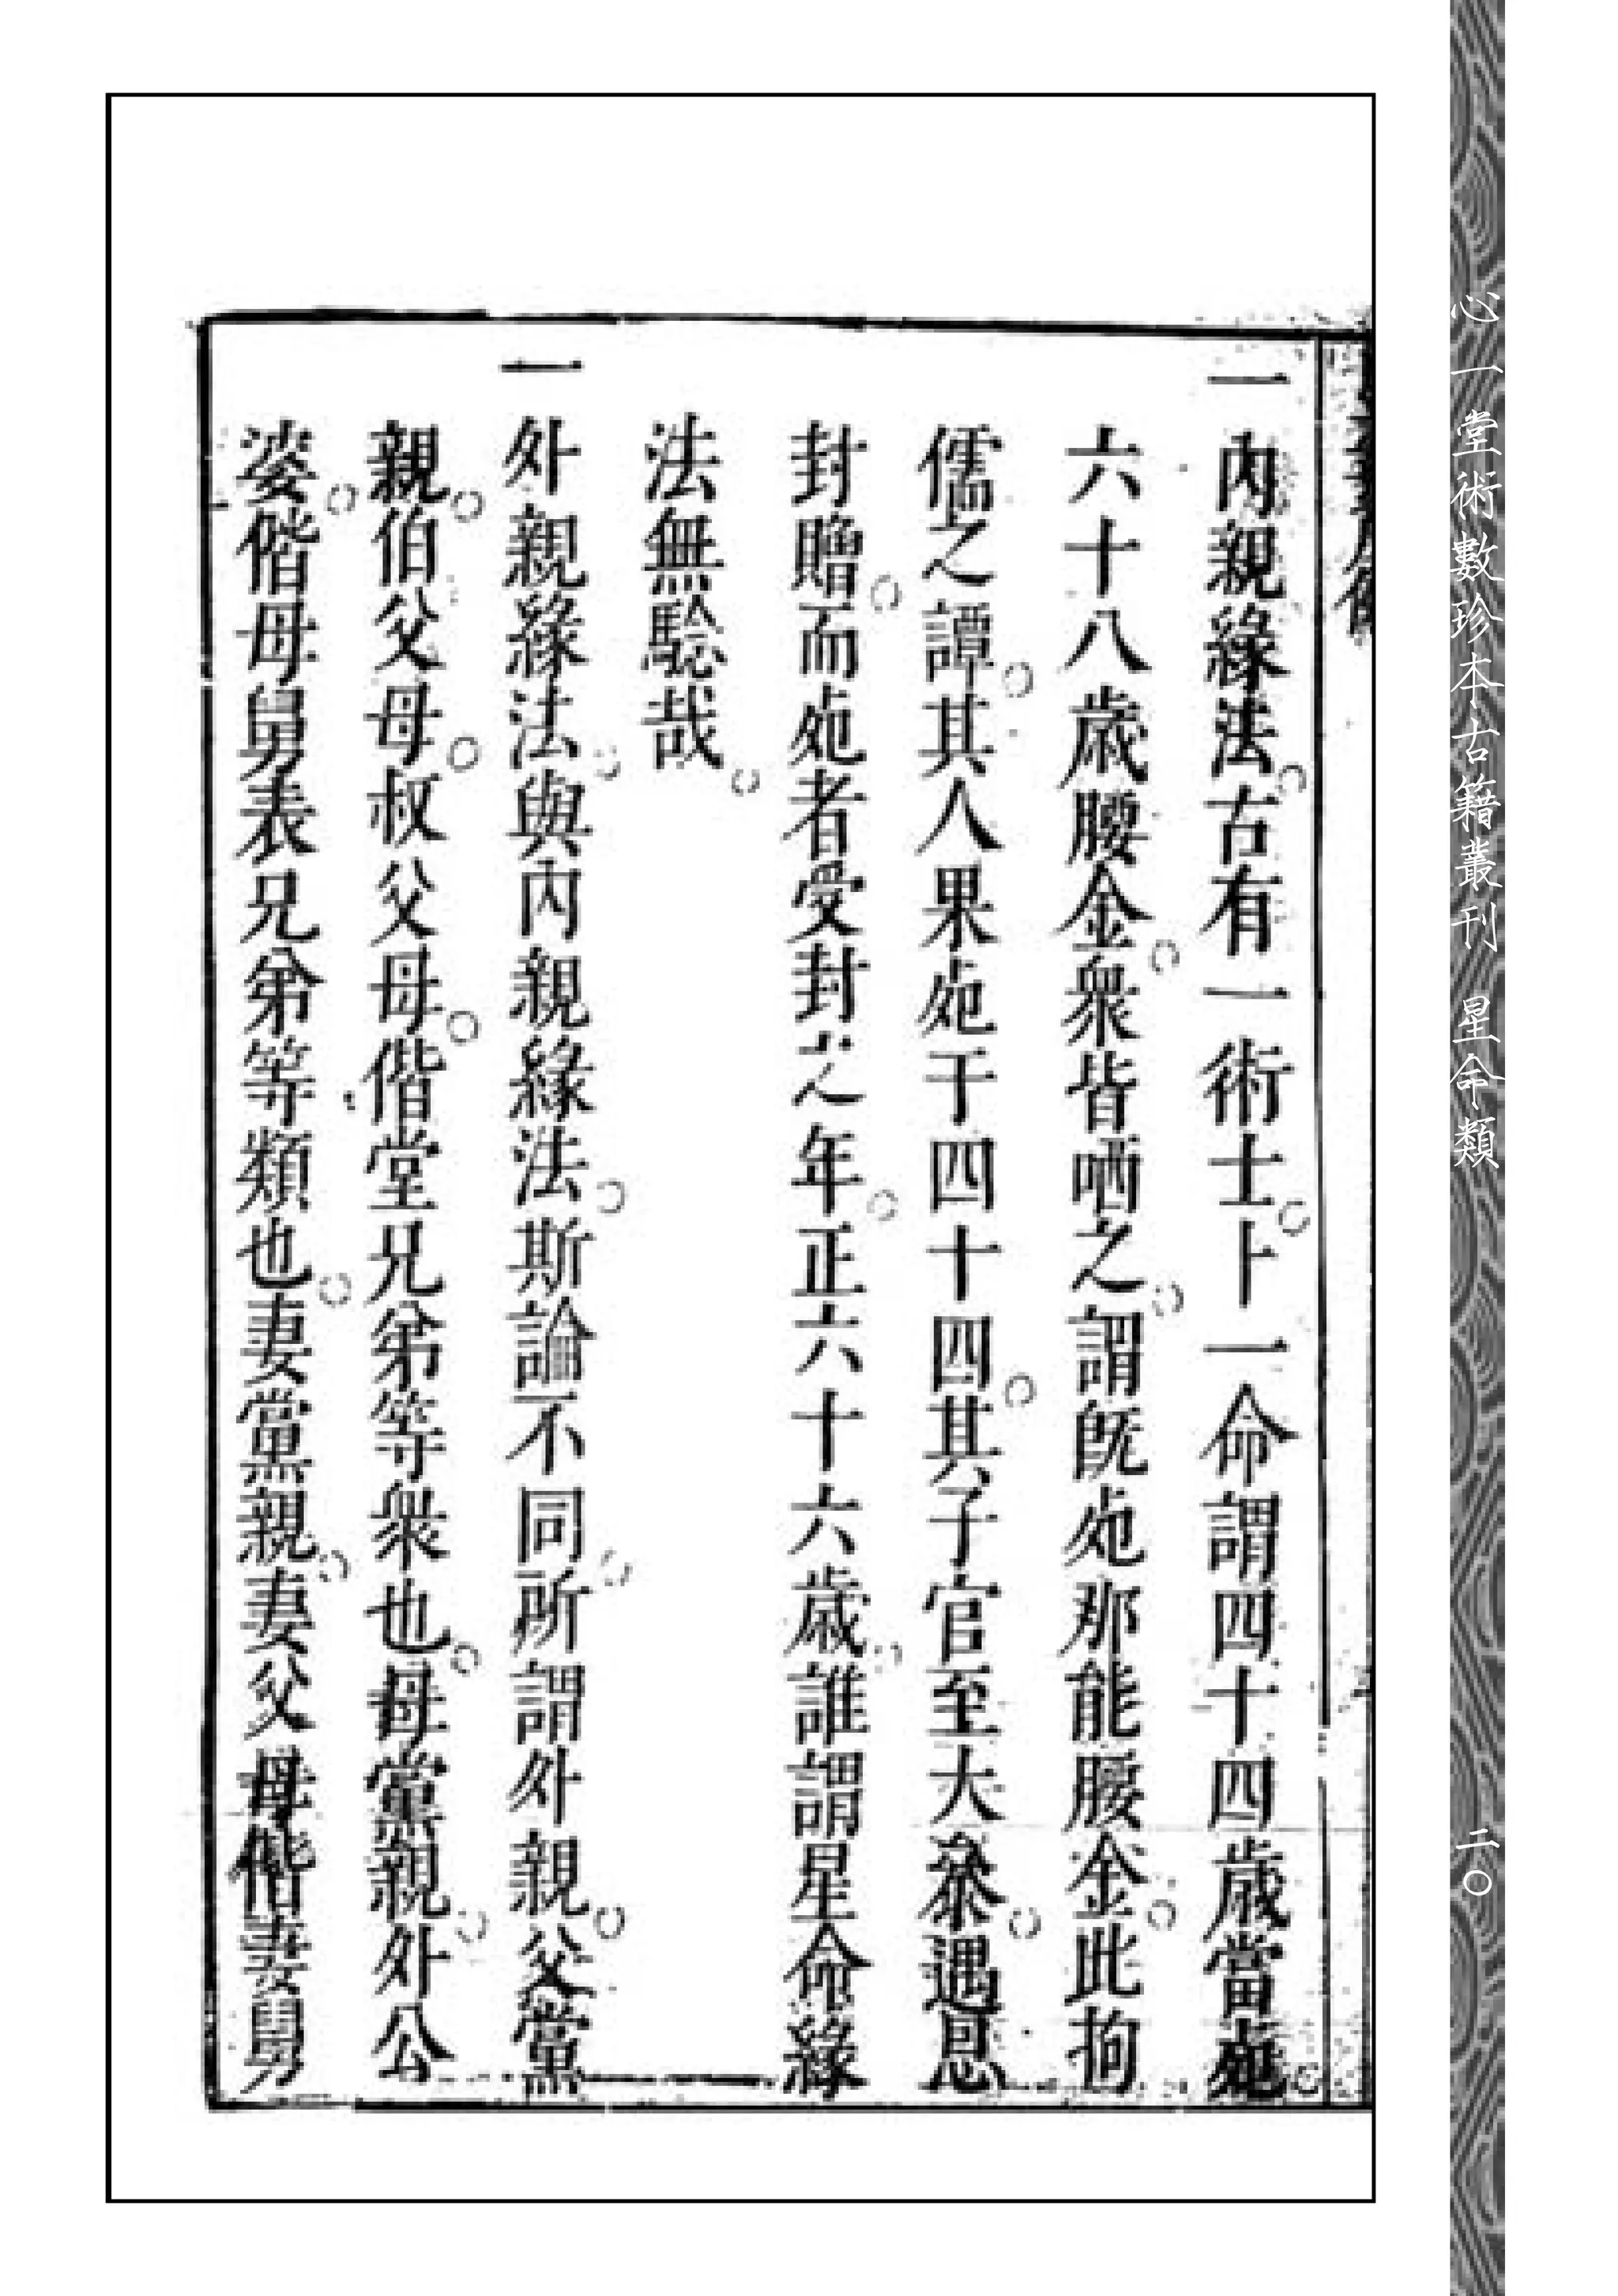 一內親緣法。古有一術士。卜一命謂四十四歲當𣦸。
六十八歲腰金。衆皆哂之。謂旣𣦸那能腰金。此拘
儒之譚。其人果𣦸于四十四。其子官至大叅。遇恩
封贈。而𣦸者受封之年。正六十六歲。誰謂星命緣
法無驗哉。
一外親緣法。與內親緣法。斯論不同。所謂外親。父黨
親。伯父母。叔父母。偕堂兄弟等衆也。母黨親。外公
婆。偕母舅表兄弟等類也。妻黨親。妻父母偕妻舅
心一堂術數珍本古籍叢刊 星命類
二〇